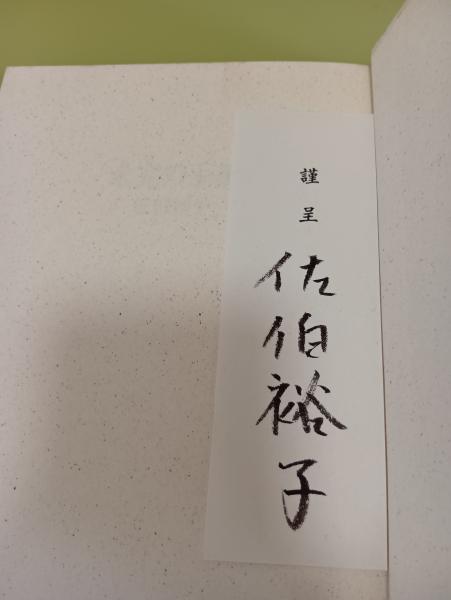 謹呈
佐伯裕子